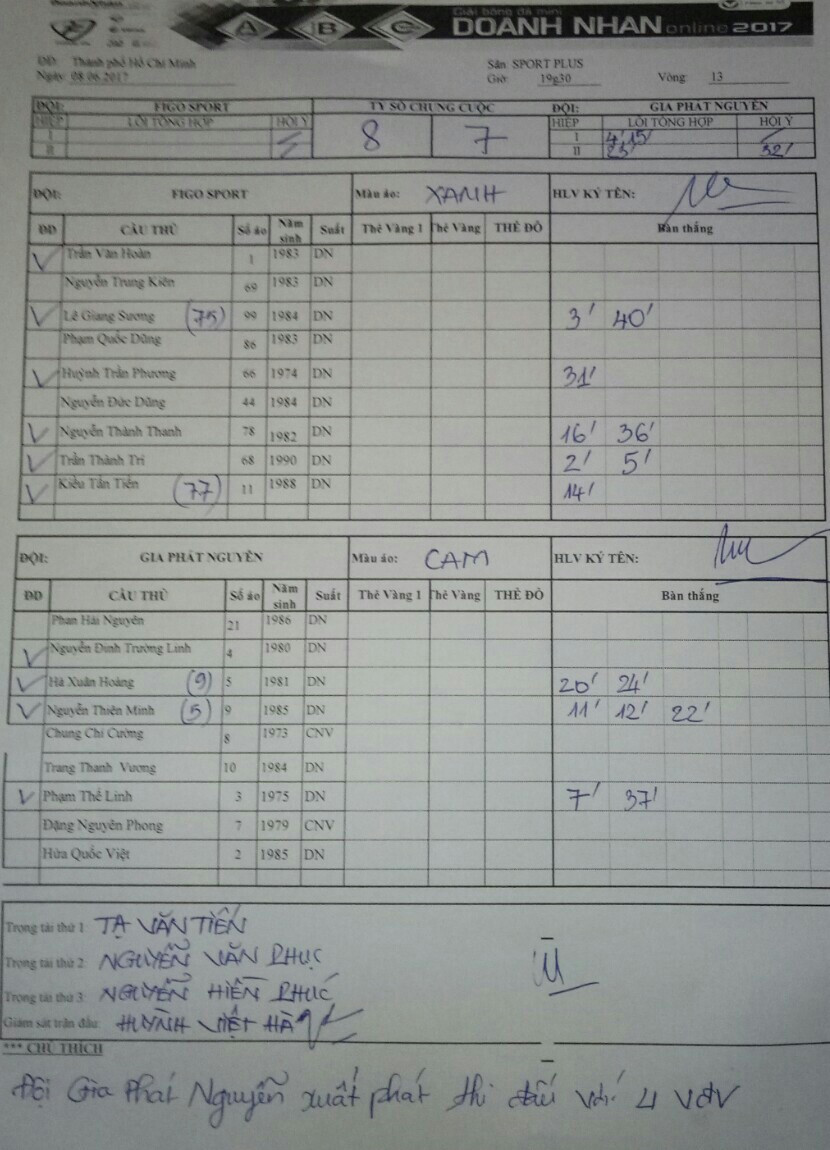 Giải bóng đá mini
A B C DOANH NHÂN online 2017
ĐĐ: Thành phố Hồ Chí Minh Sân SPORT PLUS
Ngày: 08.06.2017 Giờ: 19g30 Vòng: 13
ĐỘI: FIGO SPORT TỶ SỐ CHUNG CUỘC ĐỘI: GIA PHÁT NGUYÊN
HIỆP LỖI TỔNG HỢP HỘI Ý 8 7 HIỆP LỖI TỔNG HỢP HỘI Ý
I I 4' 15'
II II 23' 32'
ĐỘI: FIGO SPORT Màu áo: XANH HLV KÝ TÊN:
ĐD CẦU THỦ Số áo Năm sinh Suất Thẻ Vàng 1 Thẻ Vàng THẺ ĐỎ Bàn thắng
Trần Văn Hoàn 1 1983 DN
Nguyễn Trung Kiên 69 1983 DN
Lê Giang Sương (75) 99 1984 DN 3' 40'
Phạm Quốc Dũng 86 1983 DN
Huỳnh Trần Phương 66 1974 DN 31'
Nguyễn Đức Dũng 44 1984 DN
Nguyễn Thành Thanh 78 1982 DN 16' 36'
Trần Thành Trí 68 1990 DN 2' 5'
Kiều Tấn Tiền (77) 11 1988 DN 14'
ĐỘI: GIA PHÁT NGUYÊN Màu áo: CAM HLV KÝ TÊN:
ĐD CẦU THỦ Số áo Năm sinh Suất Thẻ Vàng 1 Thẻ Vàng THẺ ĐỎ Bàn thắng
Phan Hải Nguyên 21 1986 DN
Nguyễn Đình Trường Linh 4 1980 DN
Hà Xuân Hoàng (9) 5 1981 DN 20' 24'
Nguyễn Thiên Minh (5) 9 1985 DN 11' 12' 22'
Chung Chí Cường 8 1973 CNV
Trang Thanh Vương 10 1984 DN
Phạm Thế Linh 3 1975 DN 7' 37'
Đặng Nguyên Phong 7 1979 CNV
Hứa Quốc Việt 2 1985 DN
Trọng tài thứ 1: TẠ VĂN TIẾN
Trọng tài thứ 2: NGUYỄN VĂN PHỤC
Trọng tài thứ 3: NGUYỄN HIỀN PHÚC
Giám sát trận đấu: HUỲNH VIỆT HÀ
*** CHÚ THÍCH
Đội Gia Phát Nguyễn xuất phát thi đấu với 4 vđv